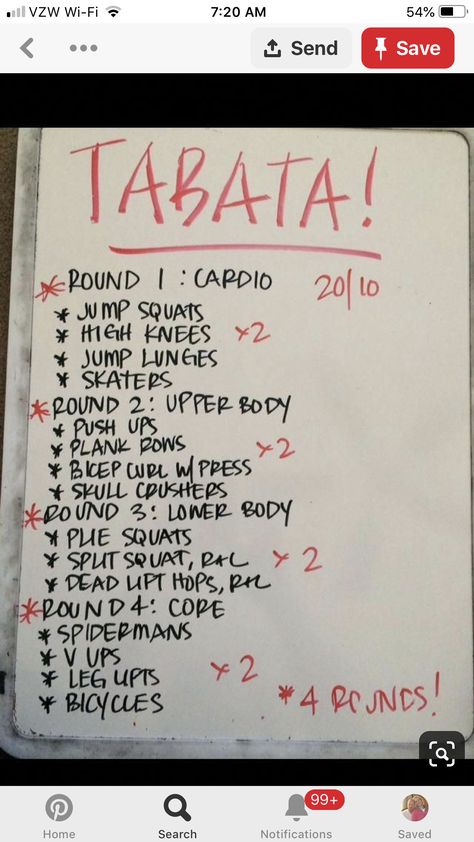 VZW Wi-Fi 7:20 AM 54%
Send Save
TABATA!
* ROUND 1 : CARDIO 20/10
* JUMP SQUATS
* HIGH KNEES x2
* JUMP LUNGES
* SKATERS
* ROUND 2: UPPER BODY
* PUSH UPS
* PLANK ROWS x2
* BICEP CURL W/PRESS
* SKULL CRUSHERS
* ROUND 3: LOWER BODY
* PLIE SQUATS
* SPLIT SQUAT, R+L x2
* DEAD LIFT HOPS, R+L
* ROUND 4: CORE
* SPIDERMANS
* V UPS
* LEG LIFTS x2
* BICYCLES
* 4 ROUNDS!
99+
Home Search Notifications Saved